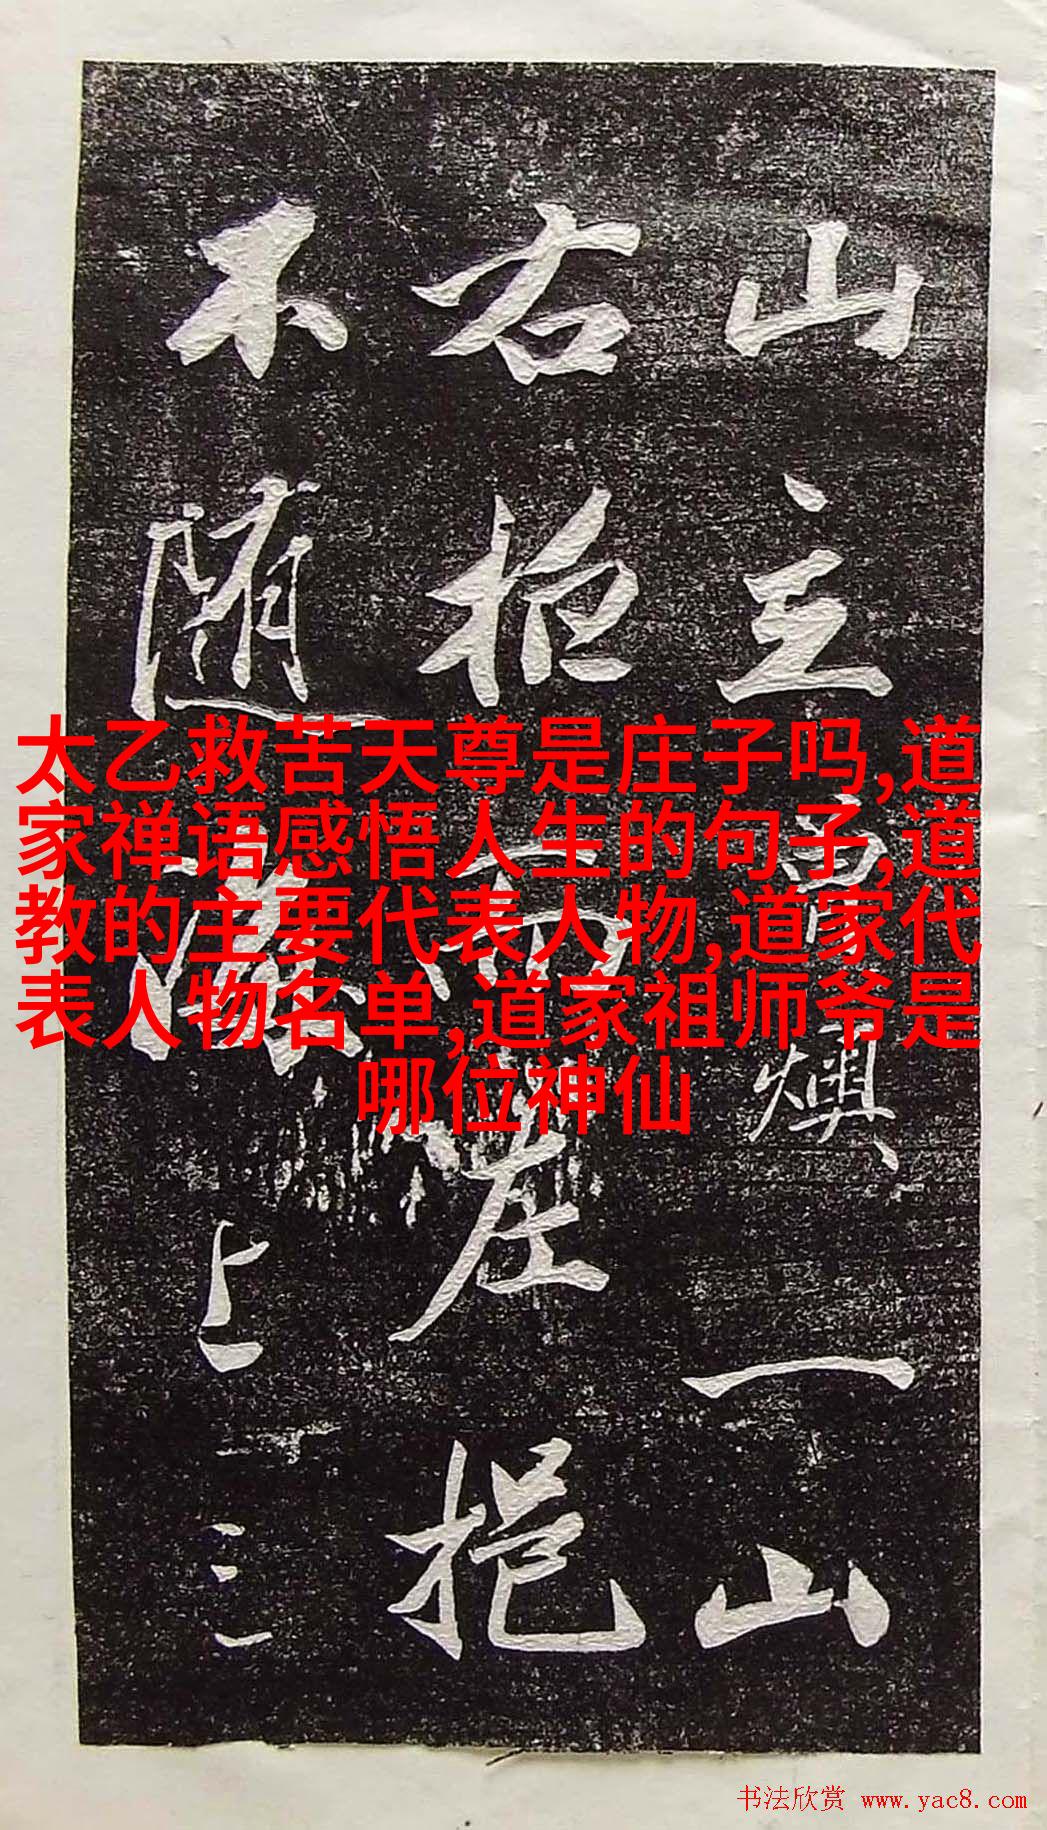 山主書燠、一山
右極高座挹
不随 上三
太乙救苦天尊是庄子吗,道
家禅语感悟人生的句子,道
教的主要代表人物,道家代
表人物名单,道家祖师爷是
哪位神仙
书法欣赏 www.yac8.com